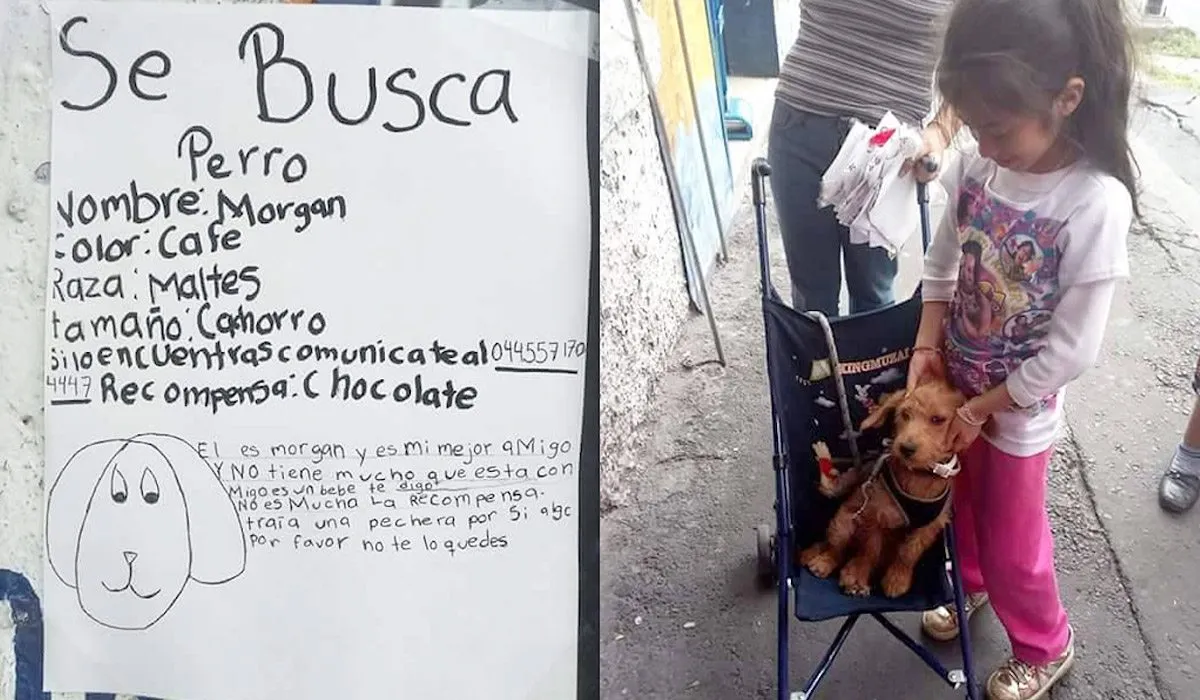 Se Busca
Perro
Nombre: Morgan
Color: Cafe
Raza: Maltes
tamaño: Cachorro
Si lo encuentras comunicate al 044557170
4447 Recompensa: Chocolate
El es morgan y es mi mejor amigo
Y NO tiene mucho que esta con
Migo es un bebe te digo
No es Mucha La Recompensa.
traia una pechera por Si algo
por favor no te lo quedes
KINGMUZAI